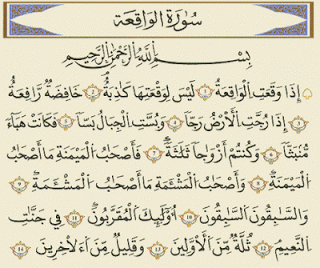 سُورَةُ الوَاقِعَة
بِسْمِ اللَّهِ الرَّحْمَٰنِ الرَّحِيمِ
إِذَا وَقَعَتِ الْوَاقِعَةُ ١ لَيْسَ لِوَقْعَتِهَا كَاذِبَةٌ ٢ خَافِضَةٌ رَّافِعَةٌ
٣ إِذَا رُجَّتِ الْأَرْضُ رَجًّا ٤ وَبُسَّتِ الْجِبَالُ بَسًّا ٥ فَكَانَتْ هَبَاءً
مُّنبَثًّا ٦ وَكُنتُمْ أَزْوَاجًا ثَلَاثَةً ٧ فَأَصْحَابُ الْمَيْمَنَةِ مَا أَصْحَابُ
الْمَيْمَنَةِ ٨ وَأَصْحَابُ الْمَشْـَٔمَةِ مَا أَصْحَابُ الْمَشْـَٔمَةِ ٩
وَالسَّابِقُونَ السَّابِقُونَ ١٠ أُولَٰئِكَ الْمُقَرَّبُونَ ١١ فِي جَنَّاتِ
النَّعِيمِ ١٢ ثُلَّةٌ مِّنَ الْأَوَّلِينَ ١٣ وَقَلِيلٌ مِّنَ الْآخِرِينَ ١٤